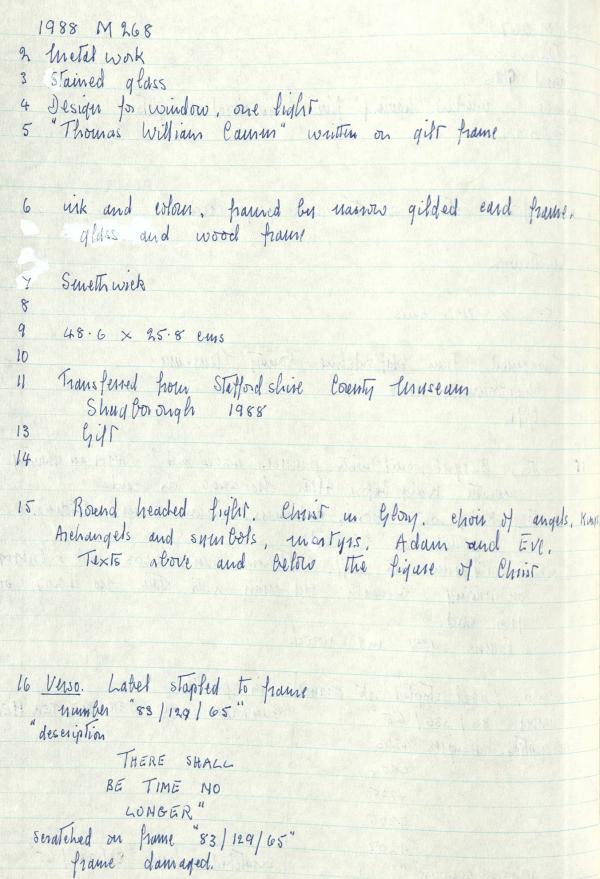 1988 M 268
2 Metal work
3 Stained glass
4 Design for window, one light
5 "Thomas William Camm" written on gilt frame
6 ink and colour, framed by narrow gilded card frame,
glass and wood frame
7 Smethwick
8
9 48.6 x 25.8 cms
10
11 Transferred from Staffordshire County Museum
Shugborough 1988
13 Gift
14
15 Round headed light, Christ in Glory, choir of angels,
Archangels and symbols, martyrs, Adam and Eve.
Texts above and below the figure of Christ
16 Verso. Label stapled to frame
number "83/129/65"
"description
THERE SHALL
BE TIME NO
LONGER"
scratched on frame "83/129/65"
frame damaged.